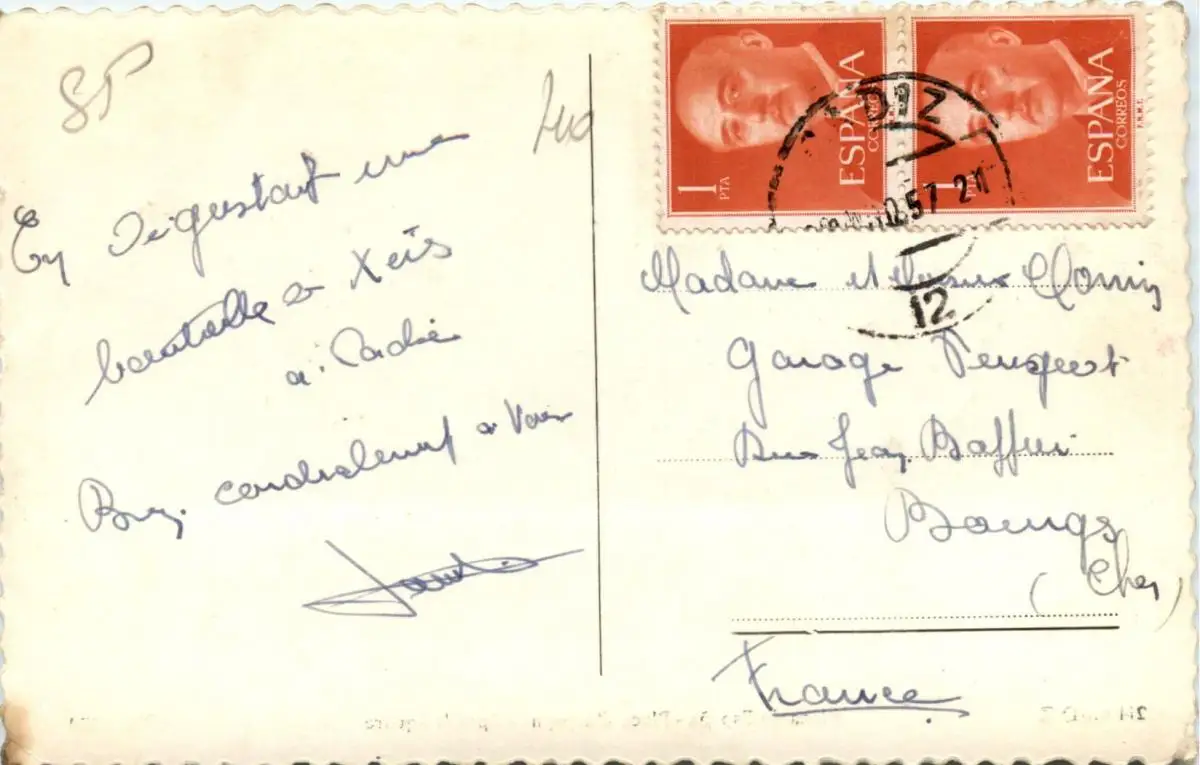 SP
En dégustant une
bouteille de Xérès
à Cadix
Bien cordialement à Vous
1
PTA
ESPAÑA
CORREOS
1
PTA
ESPAÑA
CORREOS
F.N.M.T.
57 21
12
Madame et Monsieur
Garage Peugeot
Rue Jean Baffier
Bourges
(Cher)
France